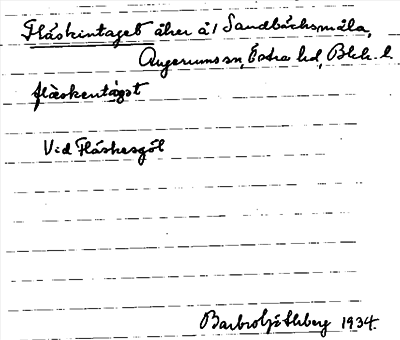 Fläskintaget åker å 1 Sandbäcksmåla,
Augerums sn, Östra hd, Blek. l.
fläskentàgət
Vid Fläskesgöl
Barbro 1934.